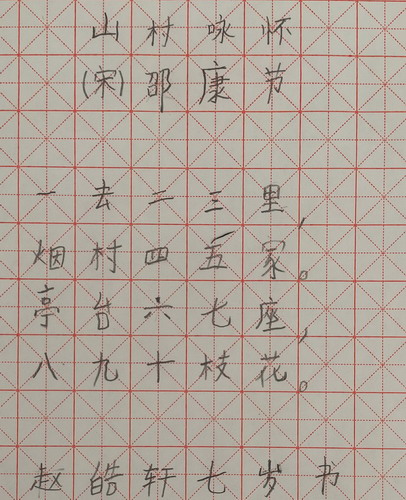 山村咏怀
(宋)邵康节
一去二三里,
烟村四五家。
亭台六七座,
八九十枝花。
赵皓轩七岁书